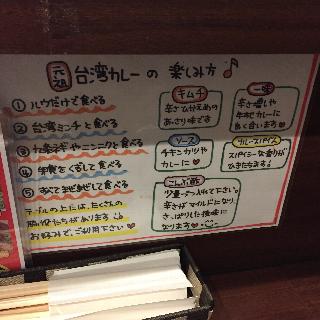 元祖 台湾カレーの楽しみ方♪
① ルウだけで食べる
② 台湾ミンチと食べる
③ 九条ネギやニンニクと食べる
④ 卵黄をくずして食べる
⑤ すべてまぜまぜして食べる
テーブルの上には、たくさんの
脇役たちがあります
お好みで、ご利用下さい♥
キムチ
辛さひかえめの
あっさり味です
一味
辛さ増しや
牛すじカレーに
よく合います♥
ソース
チキンカツや
カレーに♥
カレースパイス
スパイシーな香りが
ひきたちます!
こんぶ酢
少量ずつ入れて下さい。
辛さがマイルドになり
さっぱりした後味に
なります♥